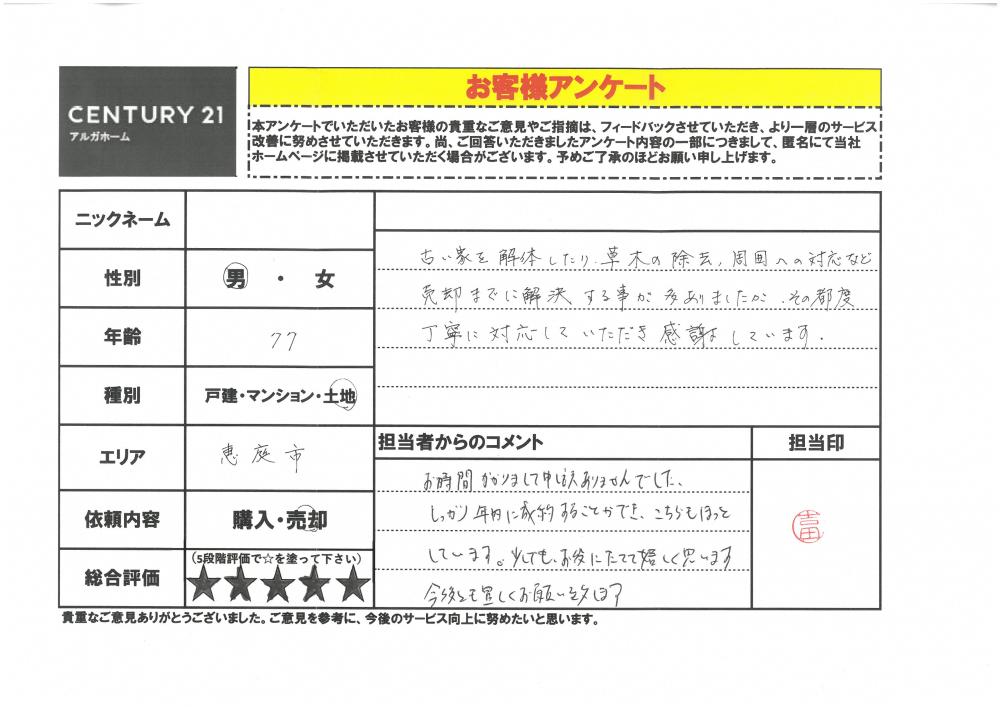 CENTURY 21
アルガホーム
お客様アンケート
本アンケートでいただいたお客様の貴重なご意見やご指摘は、フィードバックさせていただき、より一層のサービス
改善に努めさせていただきます。尚、ご回答いただきましたアンケート内容の一部につきまして、匿名にて当社
ホームページに掲載させていただく場合がございます。予めご了承のほどお願い申し上げます。
ニックネーム
性別
男 ・ 女
年齢
77
種別
戸建・マンション・土地
エリア
恵庭市
依頼内容
購入・売却
総合評価
(5段階評価で☆を塗って下さい)
★★★★★
古い家を解体したり、草木の除去、周囲への対応など
売却までに解決する事が多ありましたが、その都度
丁寧に対応していただき感謝しています。
担当者からのコメント
お時間かかりまして申し訳ありませんでした、
しっかり年内に成約することができ、こちらもほっと
しています。少しでも、お役にたてて嬉しく思います
今後とも宜しくお願い致します
担当印
吉田
貴重なご意見ありがとうございました。ご意見を参考に、今後のサービス向上に努めたいと思います。